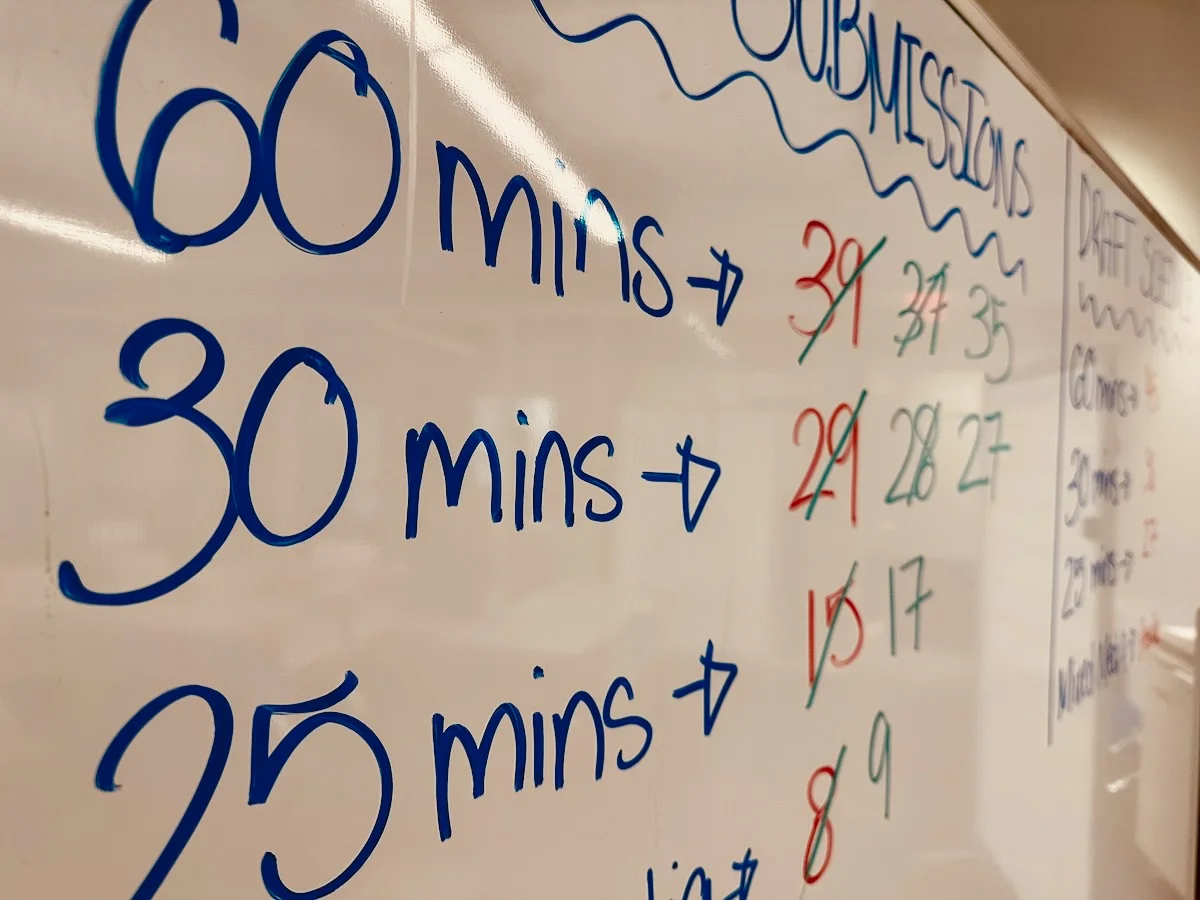 SUBMISSIONS
60 mins → 39 37 35
30 mins → 29 28 27
25 mins → 15 17
→ 8 9
DRAFT
60 mins →
30 mins →
25 mins →